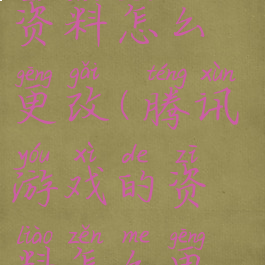 资料怎么
gēng gǎi   téng xùn
更改(腾讯
yóu xì de zī
游戏的资
liào zěn me gēng
料怎么更